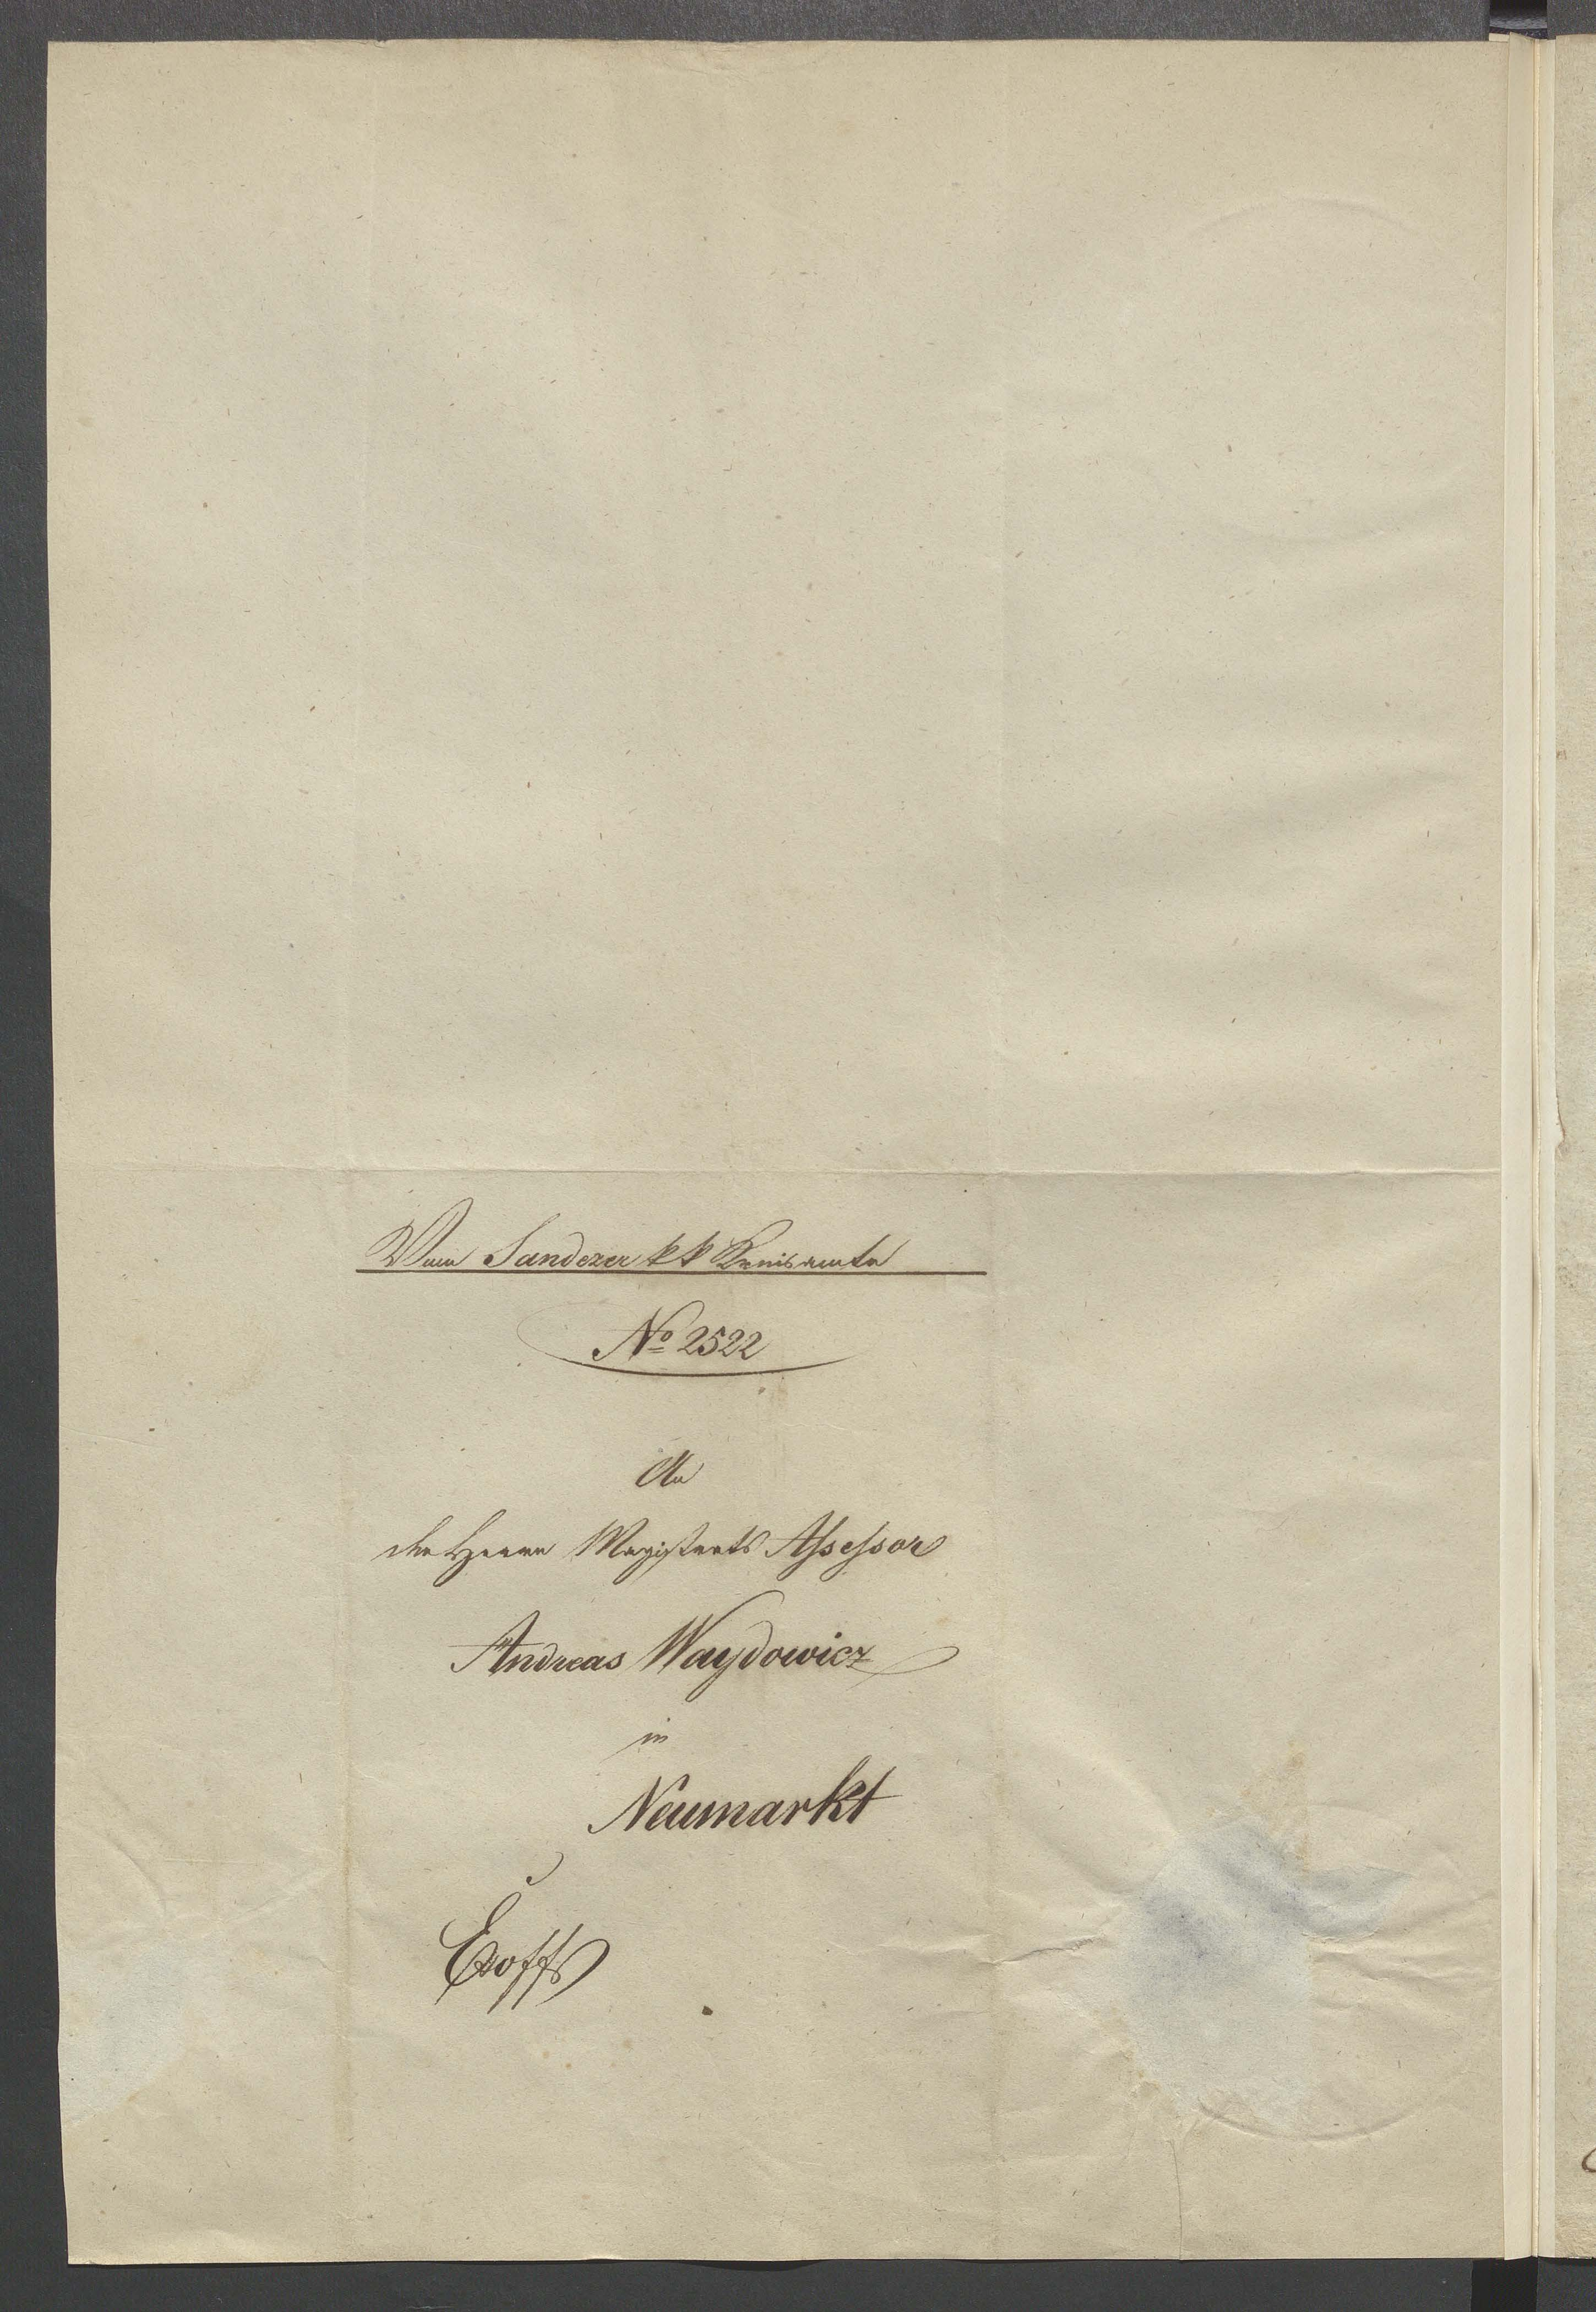 Vom Sandezer k k Kreisamte
No 2522
An
den Herrn Magistrats Assessor
Andreas Waydowicz
in
Neumarkt
Exoffo